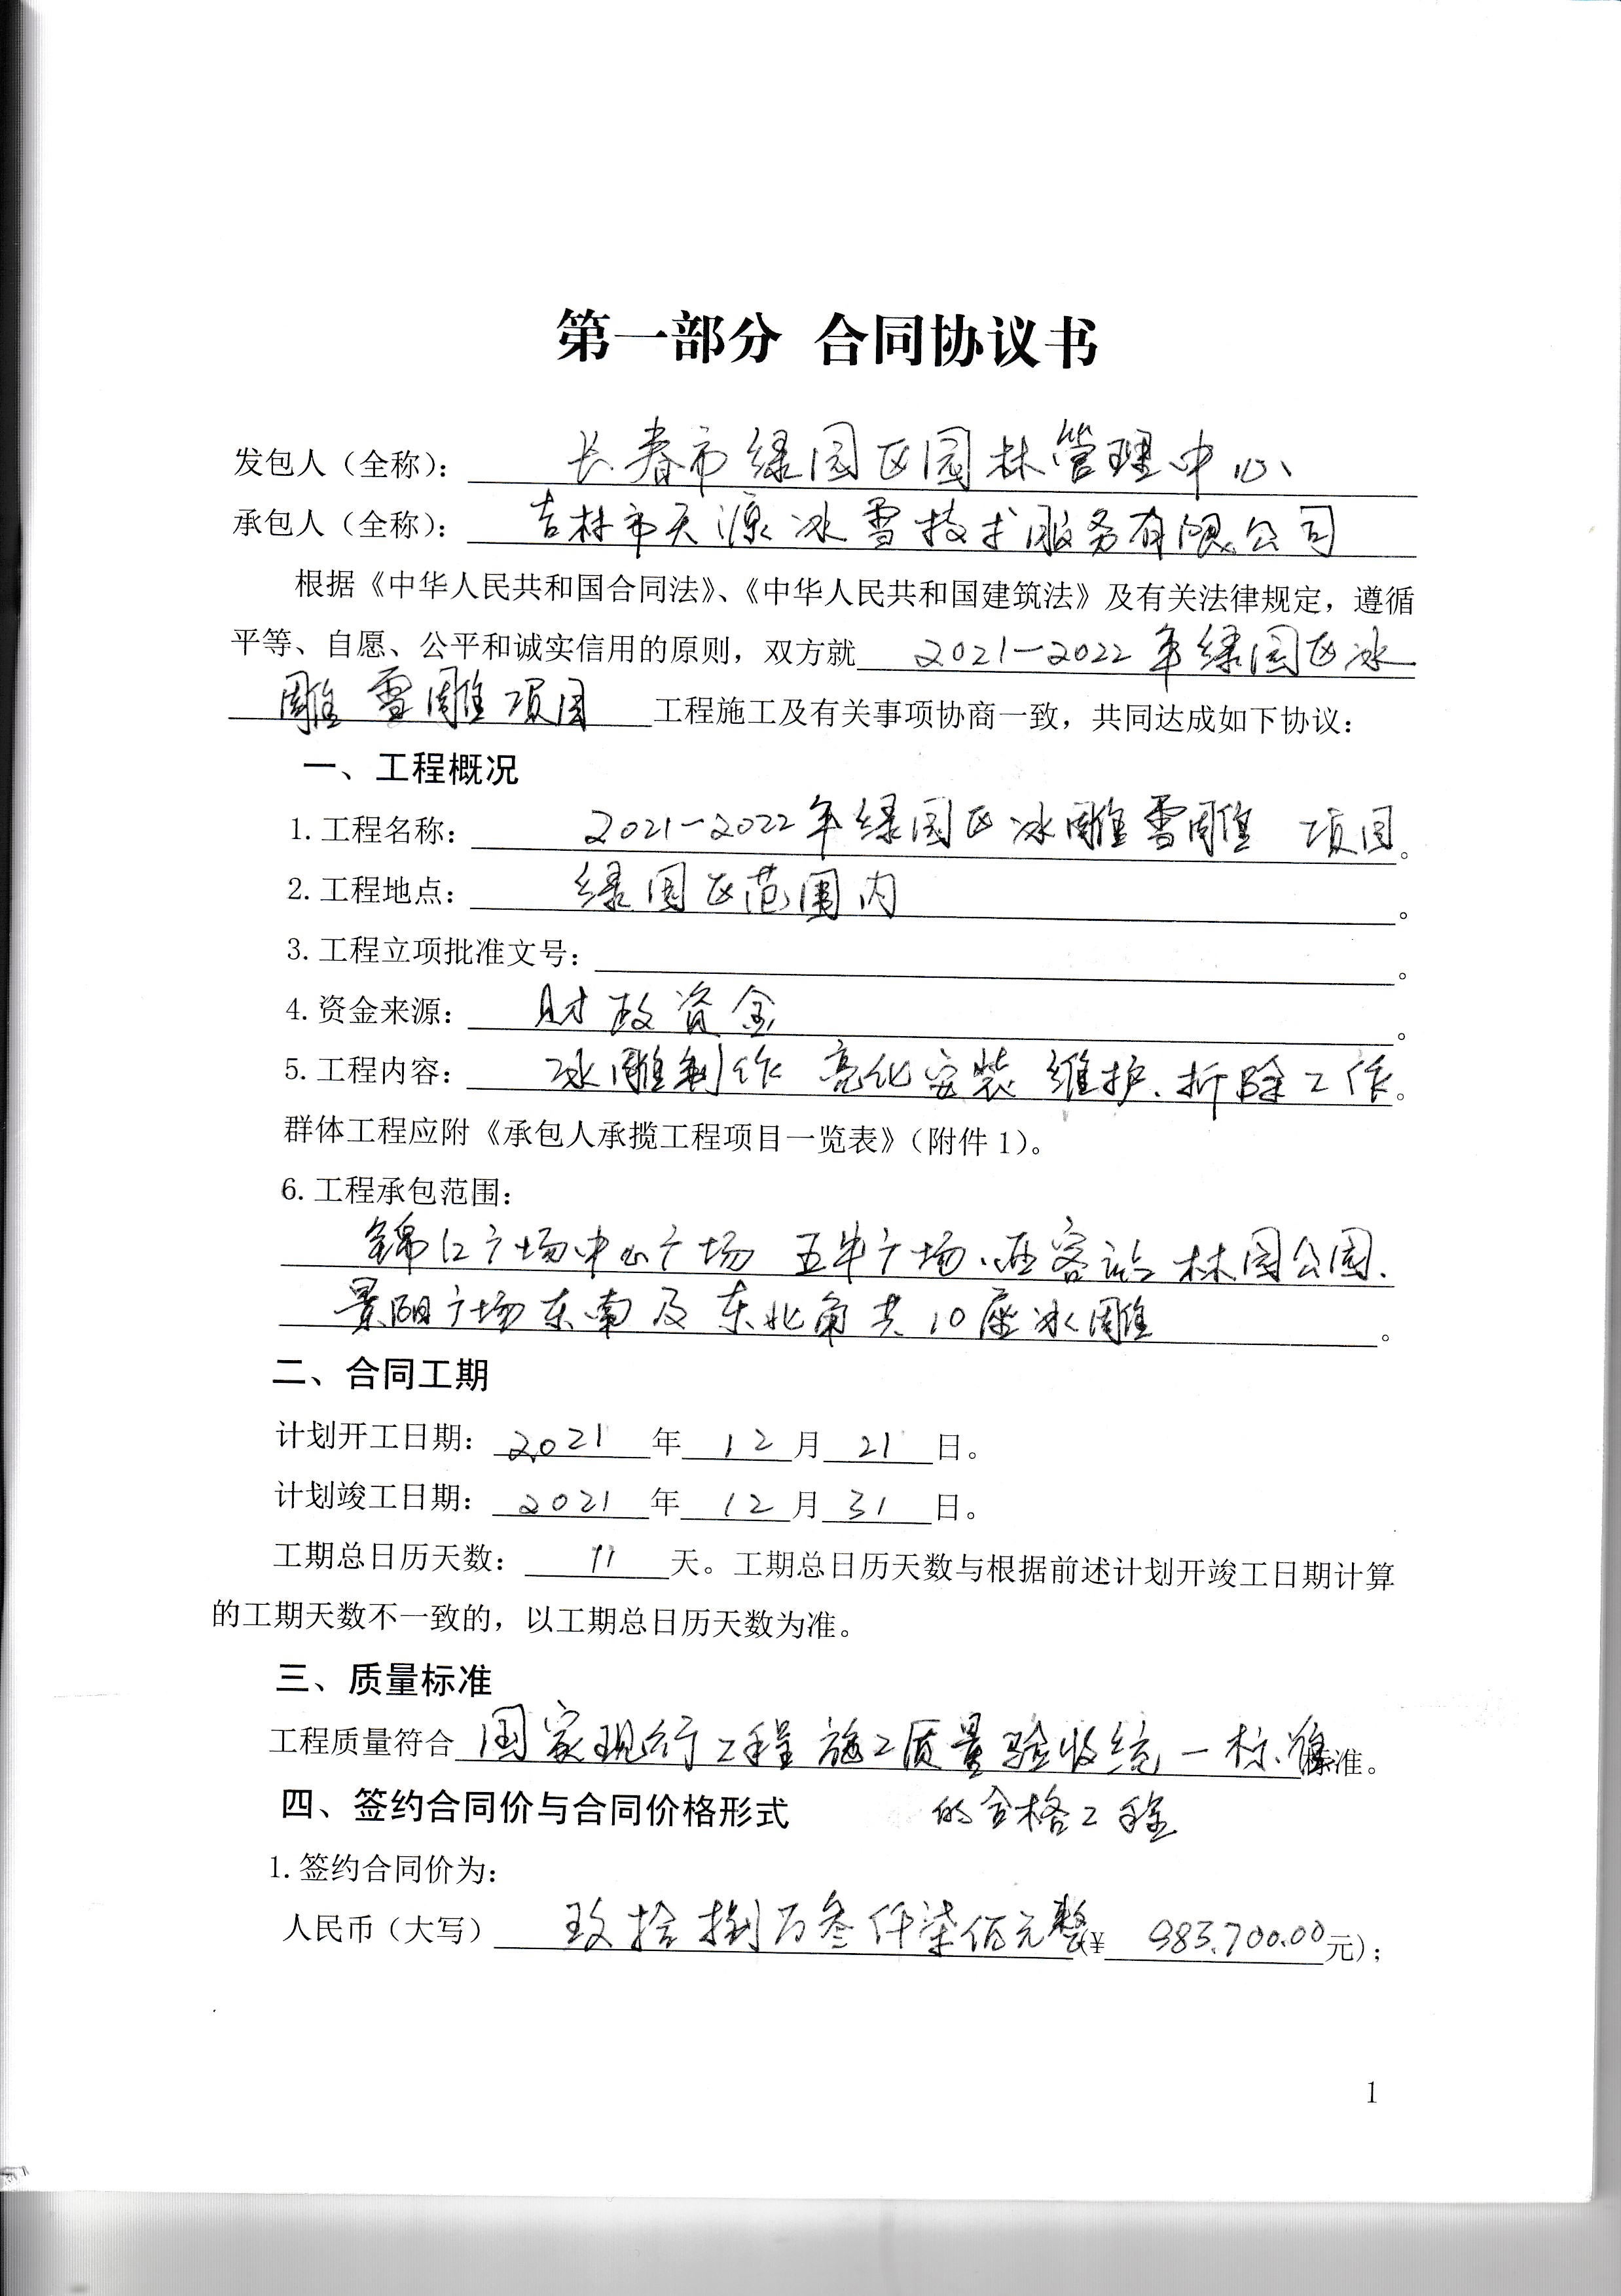 第一部分 合同协议书
发包人（全称）：长春市绿园区园林管理中心
承包人（全称）：吉林市天源冰雪技术服务有限公司
根据《中华人民共和国合同法》、《中华人民共和国建筑法》及有关法律规定，遵循
平等、自愿、公平和诚实信用的原则，双方就 2021-2022年绿园区冰
雕雪雕项目 工程施工及有关事项协商一致，共同达成如下协议：
一、工程概况
1.工程名称：2021-2022年绿园区冰雕雪雕 项目。
2.工程地点：绿园区范围内。
3.工程立项批准文号：。
4.资金来源：财政资金。
5.工程内容：冰雕制作 亮化安装 维护、拆除工作。
群体工程应附《承包人承揽工程项目一览表》（附件1）。
6.工程承包范围：
锦江广场中心广场 五牛广场、西客站 林园公园、
景阳广场东南及东北角共10座冰雕。
二、合同工期
计划开工日期：2021年12月21日。
计划竣工日期：2021年12月31日。
工期总日历天数：11天。工期总日历天数与根据前述计划开竣工日期计算
的工期天数不一致的，以工期总日历天数为准。
三、质量标准
工程质量符合国家现行工程施工质量验收统一标准标准。
四、签约合同价与合同价格形式 的合格工程
1.签约合同价为：
人民币（大写）玖拾捌万叁仟柒佰元整(¥ 983,700.00元)；
1